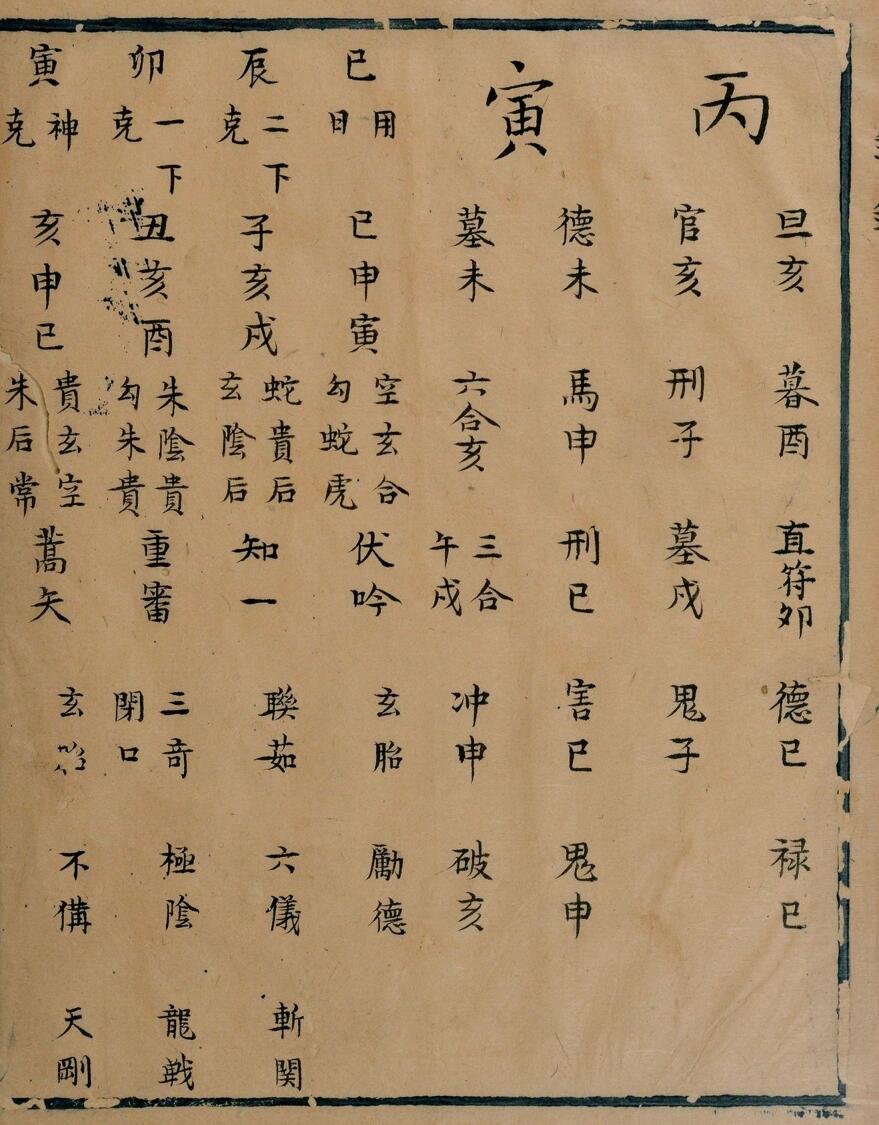 丙寅
旦亥 暮酉 直符夘 德巳 禄巳
官亥 刑子 墓戌 鬼子
德未 馬申 刑巳 害巳 鬼申
墓未 六合亥 三合午戌 冲申 破亥
巳 用日 巳申寅 空玄合 勾蛇虎 伏吟 玄胎 勵德
辰 二下克 子亥戌 蛇貴后 玄陰后 知一 聯茹 六儀 斬関
卯 一下克 丑亥酉 朱陰貴 勾朱貴 重審 三奇 閉口 極陰 龍戦
寅 神克 亥申巳 貴玄空 朱后常 蒿矢 玄 不備 天剛